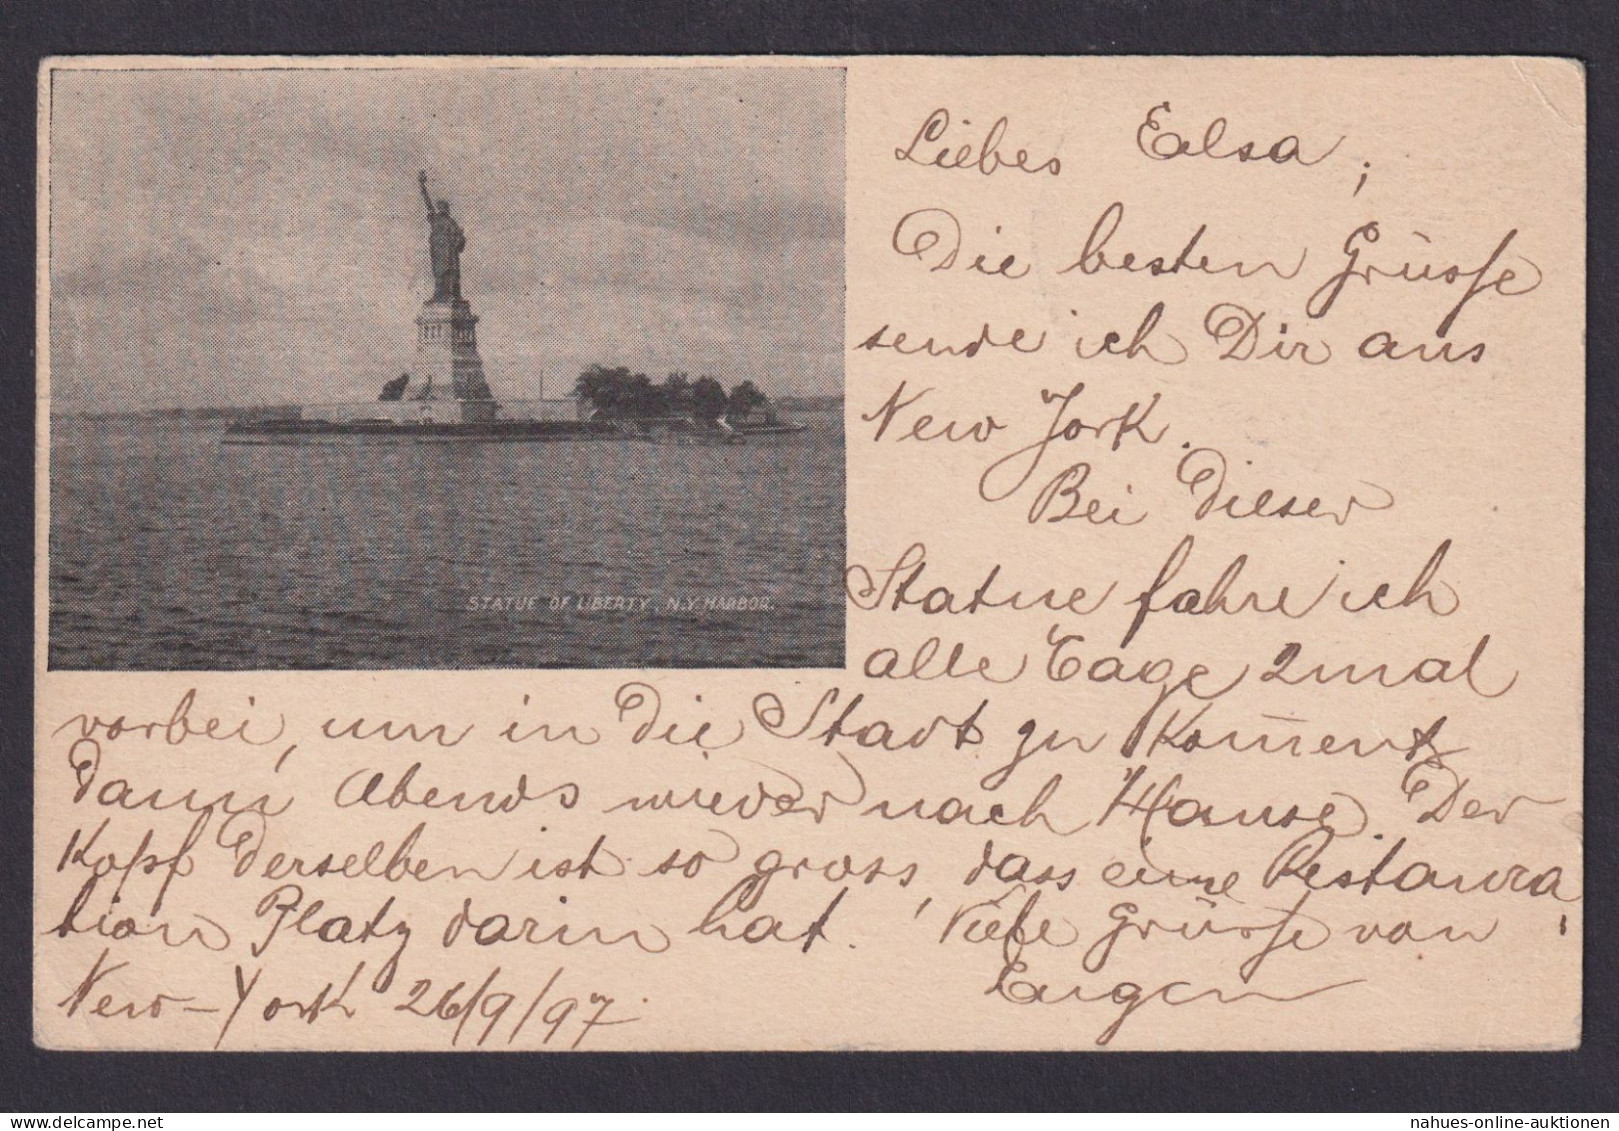 STATUE OF LIBERTY, N.Y. HARBOR.
Liebes Ealsa,
Die besten Grüsse
sende ich Dir aus
New York.
Bei dieser
Statue fahre ich
alle Tage 2mal
vorbei, um in die Stadt zu kom̄en &
dann Abends wieder nach Hause. Der
Kopf derselben ist so gross, dass eine Restaura
tion Platz darin hat. Viele Grüsse von
Eugen
New-York 26/9/97.
nahues-online-auktionen